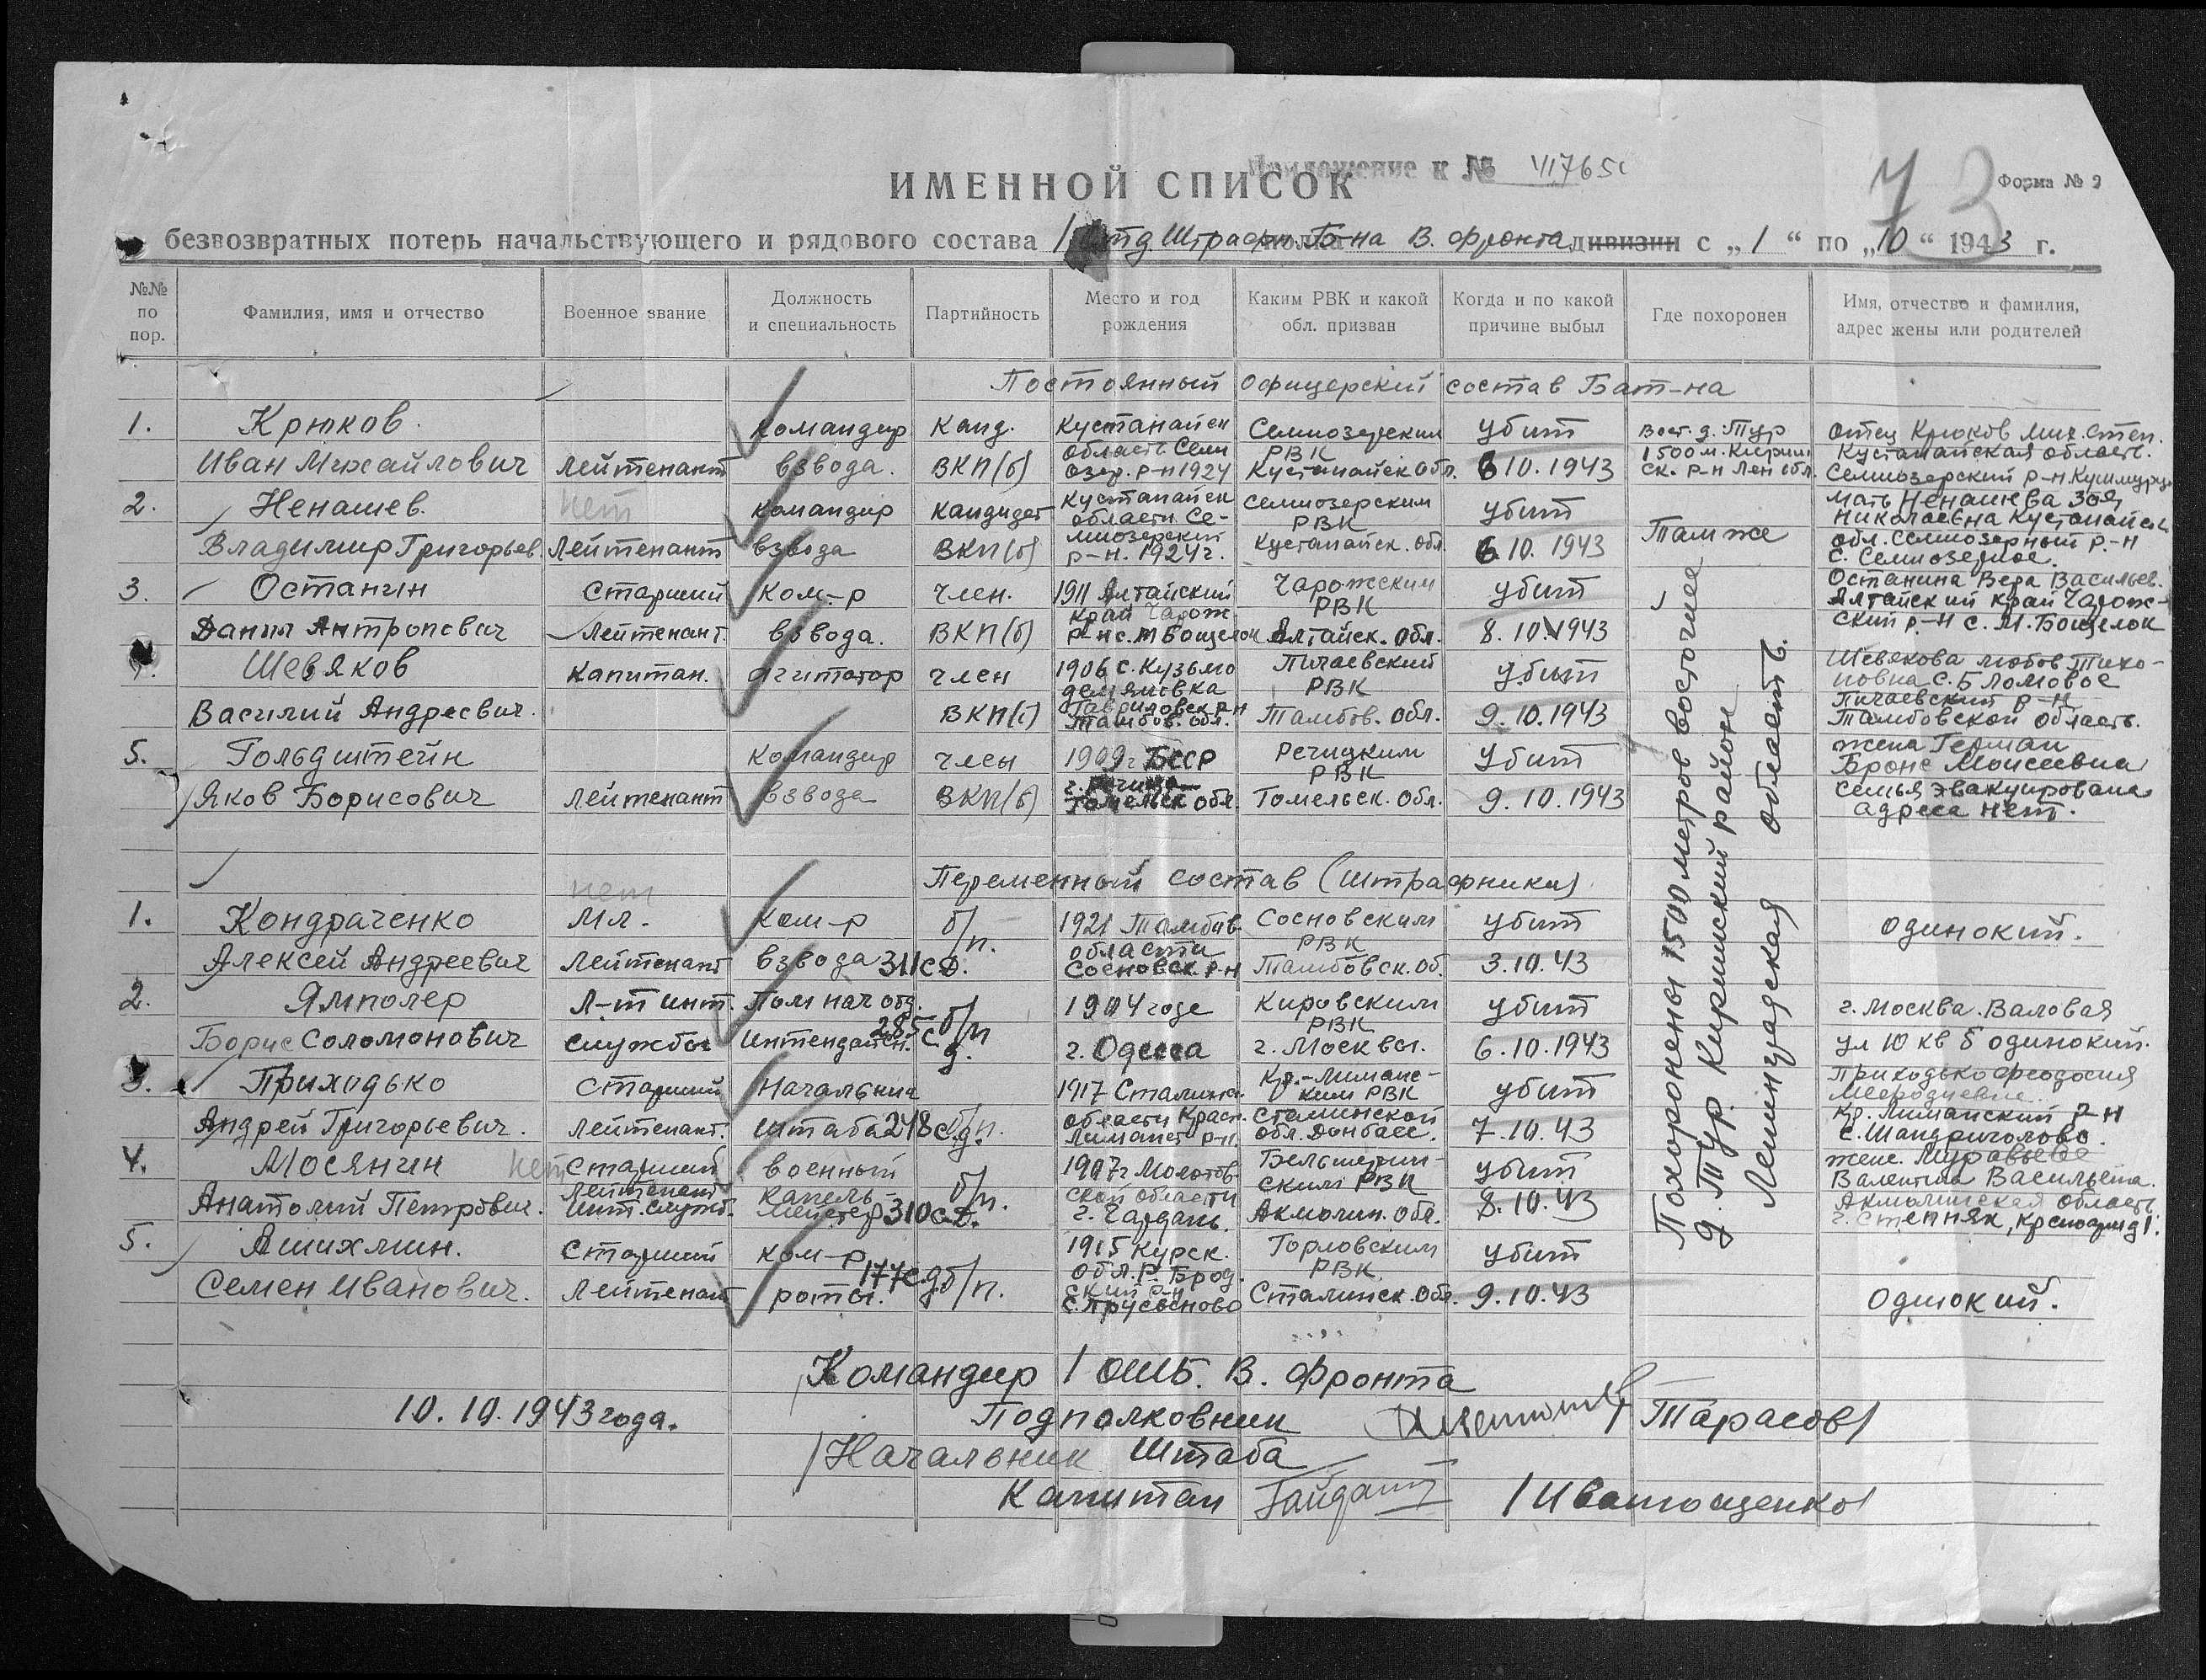 Приложение к № 41765с
73
Форма № 2
ИМЕННОЙ СПИСОК
безвозвратных потерь начальствующего и рядового состава 1 отд. Штрафн. Б-на В. фронта дивизии с „1“ по „10“ 1943 г.
№№ по пор.
Фамилия, имя и отчество
Военное звание
Должность и специальность
Партийность
Место и год рождения
Каким РВК и какой обл. призван
Когда и по какой причине выбыл
Где похоронен
Имя, отчество и фамилия, адрес жены или родителей
Постоянный офицерский состав Бат-на
1. Крюков Командир Канд. Кустанайск Семиозерским убит Вост. д. Тур отец Крюков Мих. Степ.
Иван Михайлович Лейтенант взвода. ВКП(б) область Семиозер. р-н 1924 РВК Кустанайск обл. 6.10.1943 1500 м. Киришск. р-н Лен обл. Кустанайская область. Семиозерский р-н
2. Ненашев. нет командир кандидат Кустанайск Семиозерским убит Там же мать Ненашева Зоя
Владимир Григорьев. Лейтенант взвода ВКП(б) области Семиозерский р-н. 1924 г. РВК Кустанайск. обл. 6.10.1943 Николаевна Кустанайск обл. Семиозерный р-н с. Семиозерное.
3. Останин Старший Ком-р член. 1911 Алтайский Чарожским убит Останина Вера Васильев.
Данил Антропович Лейтенант. взвода. ВКП(б) край Чарож. р-н с. М Бощелок РВК Алтайск. обл. 8.10.1943 Алтайский край Чарожский р-н с. М. Бощелок
4. Шевяков Капитан. агитатор член 1906 с. Кузьмо Пичаевский убит Шевякова Любов Тихо-
Василий Андреевич. ВКП(б) демьяновка Гавриловск р-н Тамбов. обл. РВК Тамбов. обл. 9.10.1943 новна с. Б Ломовое Пичаевский р-н Тамбовской область.
5. Гольдштейн командир члены 1909 г БССР Речицким убит жена Герман
Яков Борисович Лейтенант взвода ВКП(б) г. Речица Гомельск обл. РВК Гомельск. обл. 9.10.1943 Броне Моисеевна семья эвакуирована адреса нет.
Переменный состав (штрафники)
нет
1. Кондраченко Мл. Ком-р б/п. 1921 Тамбов. Сосновским убит одинокий.
Алексей Андреевич Лейтенант взвода 311 с.д. области Сосновск. р-н РВК Тамбовск. об. 3.10.43
2. Ямполер Л-т инт. Пом нач отд. б/п 1904 годе Кировским убит г. Москва. Валовая
Борис Соломонович службы Интендант. 285 с.д. г. Одесса РВК г. Москвы. 6.10.1943 ул 10 кв 5 одинокий.
3. Приходько Старший Начальник 1917 Сталинс. Кр.-Лиманс- убит Приходько Феодосия
Андрей Григорьевич. Лейтенант. штаба 248 с.д. б/п. области Красн. Лиманск р-н. ким РВК Сталинской обл. Донбасс. 7.10.43 Кр. Лиманский р-н с. Шандриголово.
4. Мосянин нет Старший военный 1907 г Молотов- убит жене. Муравьева
Анатолий Петрович. Лейтенант инт. служб. капель-мейстер 310 с.д. б/п. ской области г. Чардынь. ским РВК Акмолин. обл. 8.10.43 Валентина Васильевна. Акмолинская область г. Степняк,
5. Ашихмин. Старший ком-р 1915 Курск. Горловским убит
Семен Иванович. Лейтенант роты. 177 с.д. б/п. обл. Р. Бродский р-н РВК Сталинск. обл. 9.10.43 Одинокий.
Похоронены 1500 метров восточнее
д. Тур. Киришский район
Ленинградская область.
Командир 1 ОШБ. В. фронта
10.10.1943 года. Подполковник /Тарасов/
/Начальник Штаба
Капитан /Иваношенко/